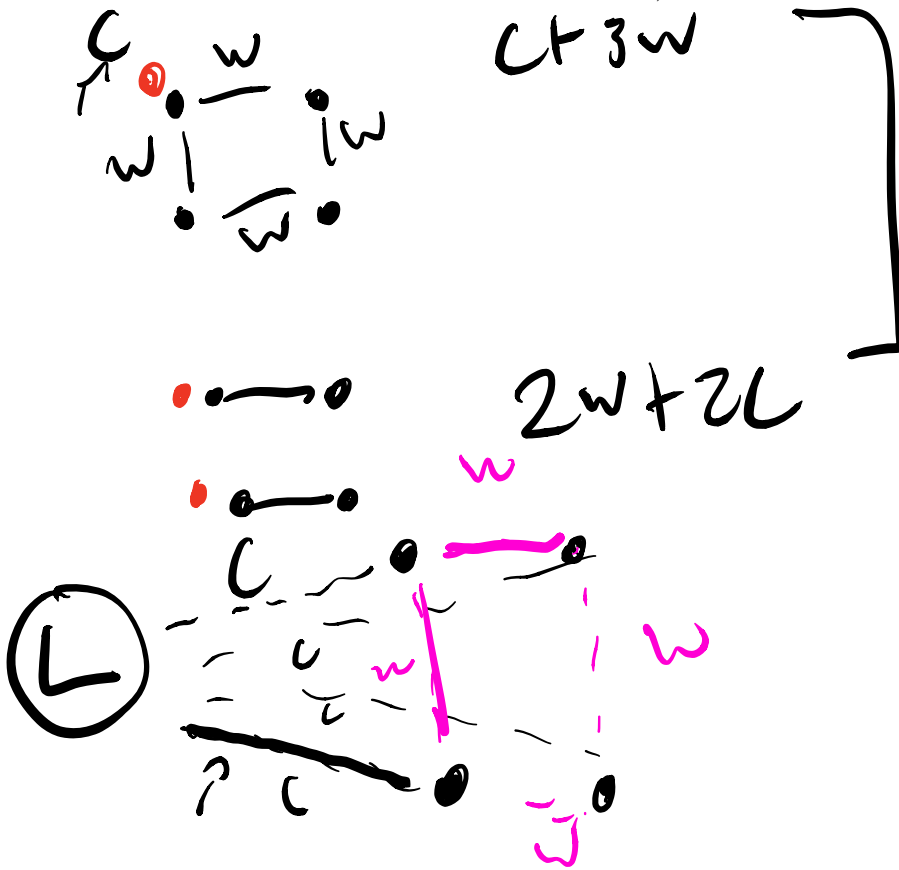 C
w
C+3w
w
w
w
2w+2C
w
C
L
C
w
w
C
C
w